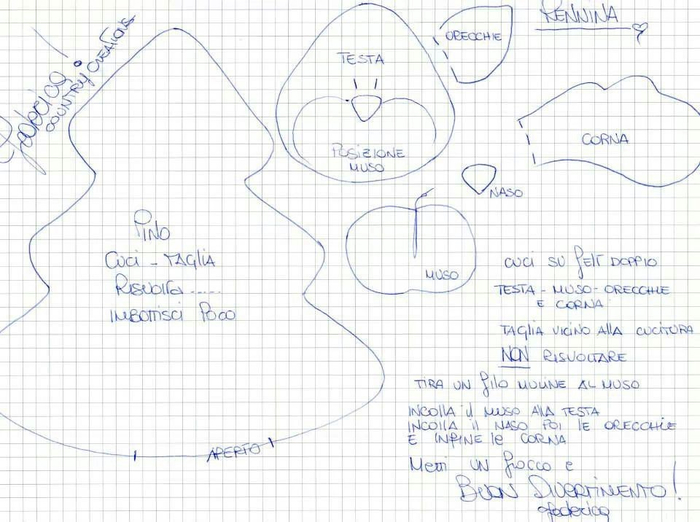 Federica!
COUNTRY CREATIONS
RENNINA
ORECCHIE
TESTA
POSIZIONE
MUSO
CORNA
NASO
MUSO
PINO
CUCI - TAGLIA
RISVOLTA.....
IMBOTTISCI POCO
APERTO
CUCI SU FELT DOPPIO
TESTA - MUSO - ORECCHIE
E CORNA
TAGLIA VICINO ALLA CUCITURA
NON RISVOLTARE
TIRA UN FILO MULINE AL MUSO
INCOLLA il MUSO ALLA TESTA
INCOLLA IL NASO POI LE ORECCHIE
E INFINE le CORNA
Metti UN fiocco e
BUON DIVERTIMENTO!
federica